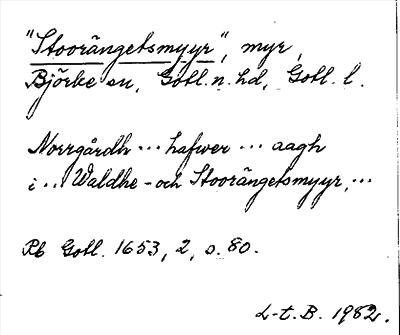 "Stoorängetsmyyr", myr,
Björke sn, Gotl. n. hd, Gotl. l.
Norrgårdh ... hafwer ... aagh
i ... Waldhe- och Stoorängetsmyyr, ...
Rb Gotl. 1653, 2, s. 80.
L-t. B. 1982.